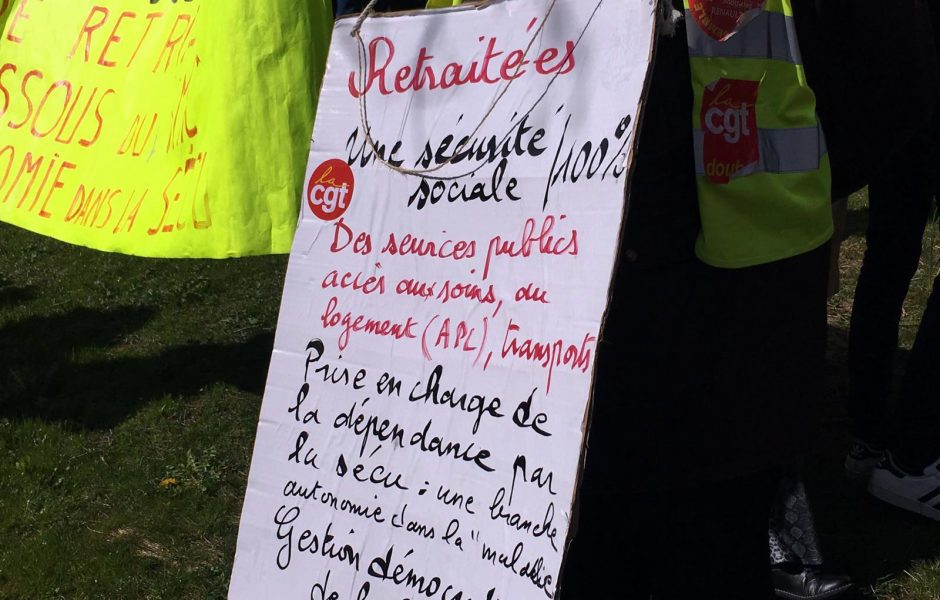 RETRA
SSOUS DU
OMIE DANS LA SÉCU
Retraité·es
Une sécurité
sociale
100%
la
cgt
Des services publics
accès aux soins, au
logement (APL), transports
Prise en charge de
la dépendance par
la sécu : une branche
autonomie dans la "maladie
Gestion démoc
de la
la
cgt